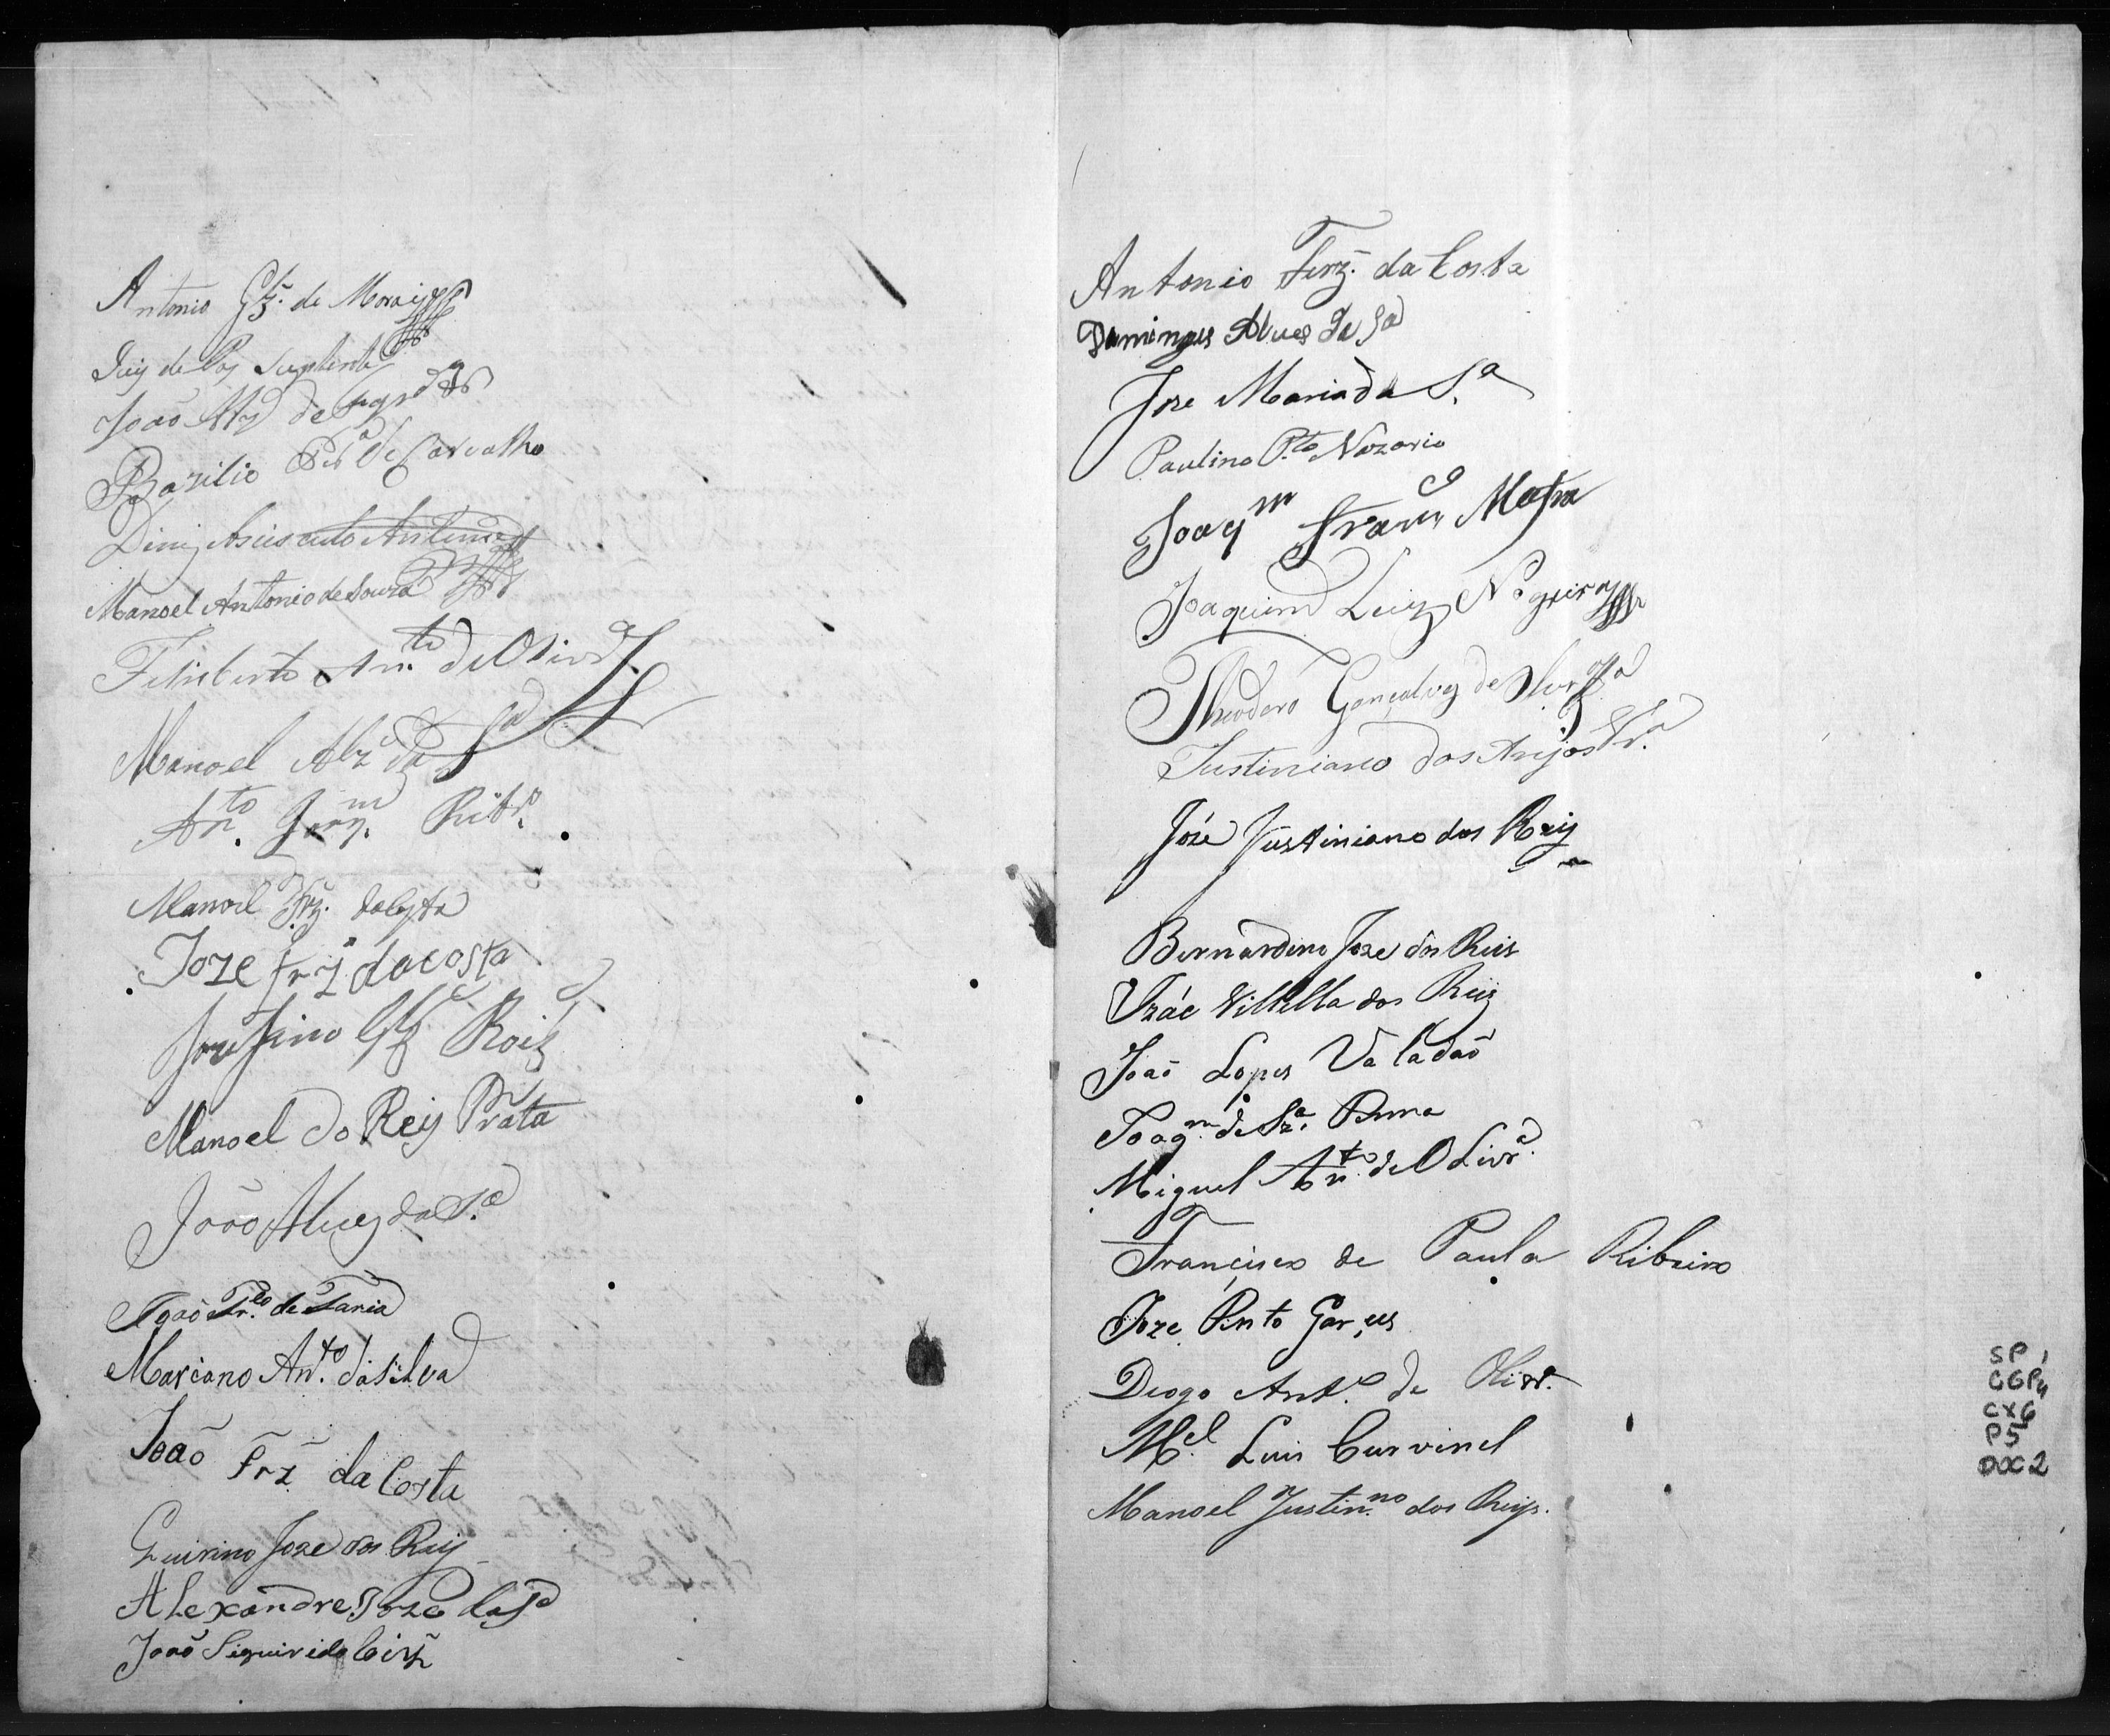 Antonio Glz. de Morais
Juiz de Paz Suplente
João
Bazilio Per.ª de Carvalho
Diniz
Manoel Antonio de Souza
Felisberto An.to de Olivr.ª
Manoel Alz da S.ª
An.to Joaq.m Ribr.º
Manoel Frz. da Costa
Joze Frz da costa
Roiz
Manoel do Reis Prata
João Alves da S.ª
João de Faria
Marciano An.to da Silva
João Frz da Costa
Quirino Joze dos Reis
Alexandre Joze da S.ª
João
Antonio Ferz. da Costa
Domingues Alves da S.ª
Joze Maria da S.ª
Paulino P.to Nazario
Joaq.m Franc.co Mafra
Joaquim Luiz Nogueira
Theodoro Gonçalves de
Justiniano dos Anjos
Józe Justiniano dos Reis
Bernardino Joze dos Reis
Izác Villella dos Reis
João Lopes Valadaõ
Joaq.m de Sz.ª Penna
Miguel An.to de Olivr.ª
Francisco de Paula Ribeiro
Joze Pinto Garces
Diogo Ant.º de Olivr.
M.el Luis Curvinel
Manoel Justin.no dos Reys.
SP 1
GGP4
CX6
P5
DOC2